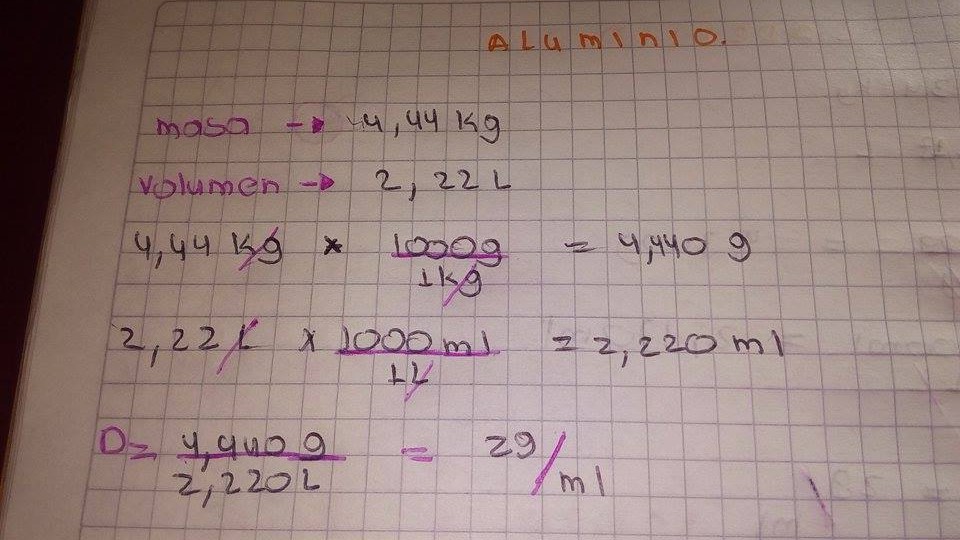 ALUMINIO.
masa → 4,44 Kg
volumen → 2, 22 L
4,44 Kg * 1000g / 1kg = 4,440 g
2,22 L x 1000 ml / 1L = 2,220 ml
D= 4,440 g / 2,220 L = 2g/ml